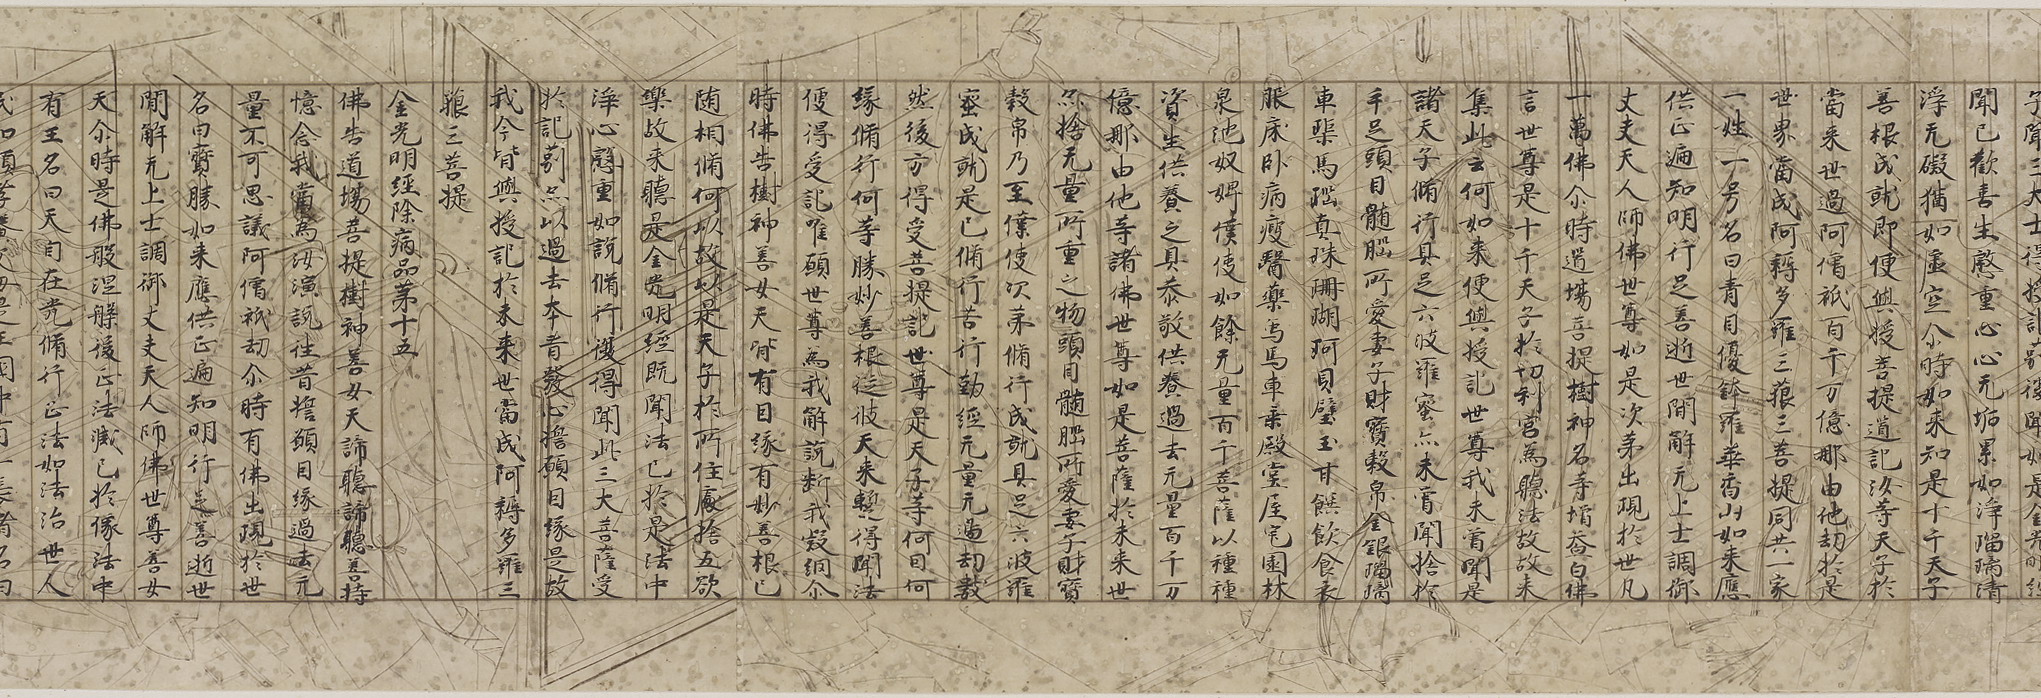 聞已歡喜生慇重心心无垢累如淨瑠璃清
淨无礙猶如虛空尒時如来知是十千天子
善根成就即便與授菩提道記汝等天子於
當来世過阿僧祇百千万億那由他劫於是
世界當成阿耨多羅三藐三菩提同共一家
一姓一号名曰青目優鉢羅華香山如来應
供正遍知明行足善逝世間解无上士調御
丈夫天人師佛世尊如是次第出現於世凡
一萬佛尒時道場菩提樹神名等增益白佛
言世尊是十千天子於忉利宮為聽法故故来
集此云何如来便與授記世尊我未曾聞是
諸天子脩行具足六波羅蜜亦未曾聞捨於
手足頭目髓腦所愛妻子財寶穀帛金銀瑠璃
車璖馬瑙真珠珊瑚珂貝璧玉甘饌飲食衣
服床卧病瘦醫藥烏馬車乘殿堂屋宅園林
泉池奴婢僕使如餘无量百千菩薩以種種
資生供養之具恭敬供養過去无量百千万
億那由他等諸佛世尊如是菩薩於未来世
亦捨无量所重之物頭目髓腦所愛妻子財寶
穀帛乃至僕使次第脩行成就具足六波羅
蜜成就是已脩行苦行動經无量无邊劫數
然後方得受菩提記世尊是天子等何因何
緣脩行何等勝妙善根從彼天来蹔得聞法
便得受記唯願世尊為我解說斷我疑網尒
時佛告樹神善女天皆有因緣有妙善根已
随相脩何以故以是天子於所住處捨五欲
樂故来聽是金光明經既聞法已於是法中
淨心慇重如說脩行復得聞此三大菩薩受
於記莂亦以過去本昔發心擔願因緣是故
我今皆與授記於未来世當成阿耨多羅三
藐三菩提
金光明經除病品第十五
佛告道場菩提樹神善女天諦聽諦聽善持
憶念我當為汝演說往昔擔願因緣過去无
量不可思議阿僧祇劫尒時有佛出現於世
名曰寶勝如来應供正遍知明行足善逝世
間解无上士調御丈夫天人師佛世尊善女
天尒時是佛般涅槃後正法滅已於像法中
有王名曰天自在光脩行正法如法治世人